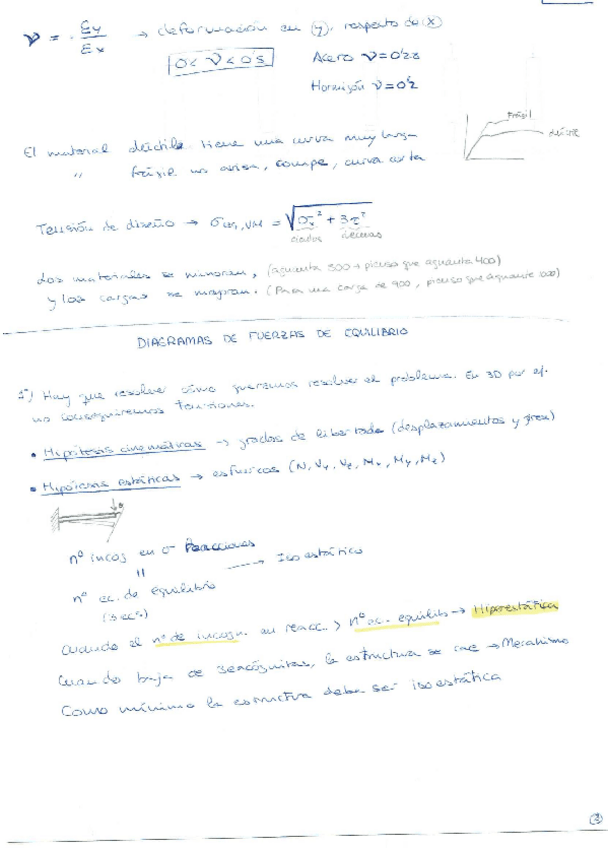 ν = - εy/εx → deformación en (y), respecto de (x)
0 < ν < 0'5
Acero ν = 0'28
Hormigón ν = 0'2
El material dúctil tiene una curva muy larga
" frágil no avisa, rompe, curva corta
Frágil
dúctil
Tensión de diseño → σ co, VM = √σ² + 3τ²
Los materiales se minoran, (aguanta 500 → pienso que aguanta 400)
y las cargas se mayoran. (Para una carga de 900, pienso que aguante 1000)
DIAGRAMAS DE FUERZAS DE EQUILIBRIO
1º) Hay que resolver cómo queremos resolver el problema. En 3D por ej.
no conseguiremos tensiones.
• Hipótesis cinemáticas → grados de libertad (desplazamientos y giros)
• Hipótesis estáticas → esfuerzos (N, Vy, Vz, Mx, My, Mz)
nº incog en Reacciones
||
→ Isoestático
nº ec. de equilibrio
(3 ecs)
Cuando el nº de incogn. en reacc. > nº ec. equilib → Hiperestática
Cuando baja de incógnitas, la estructura se cae → Mecanismo
Como mínimo la estructura debe ser isoestática